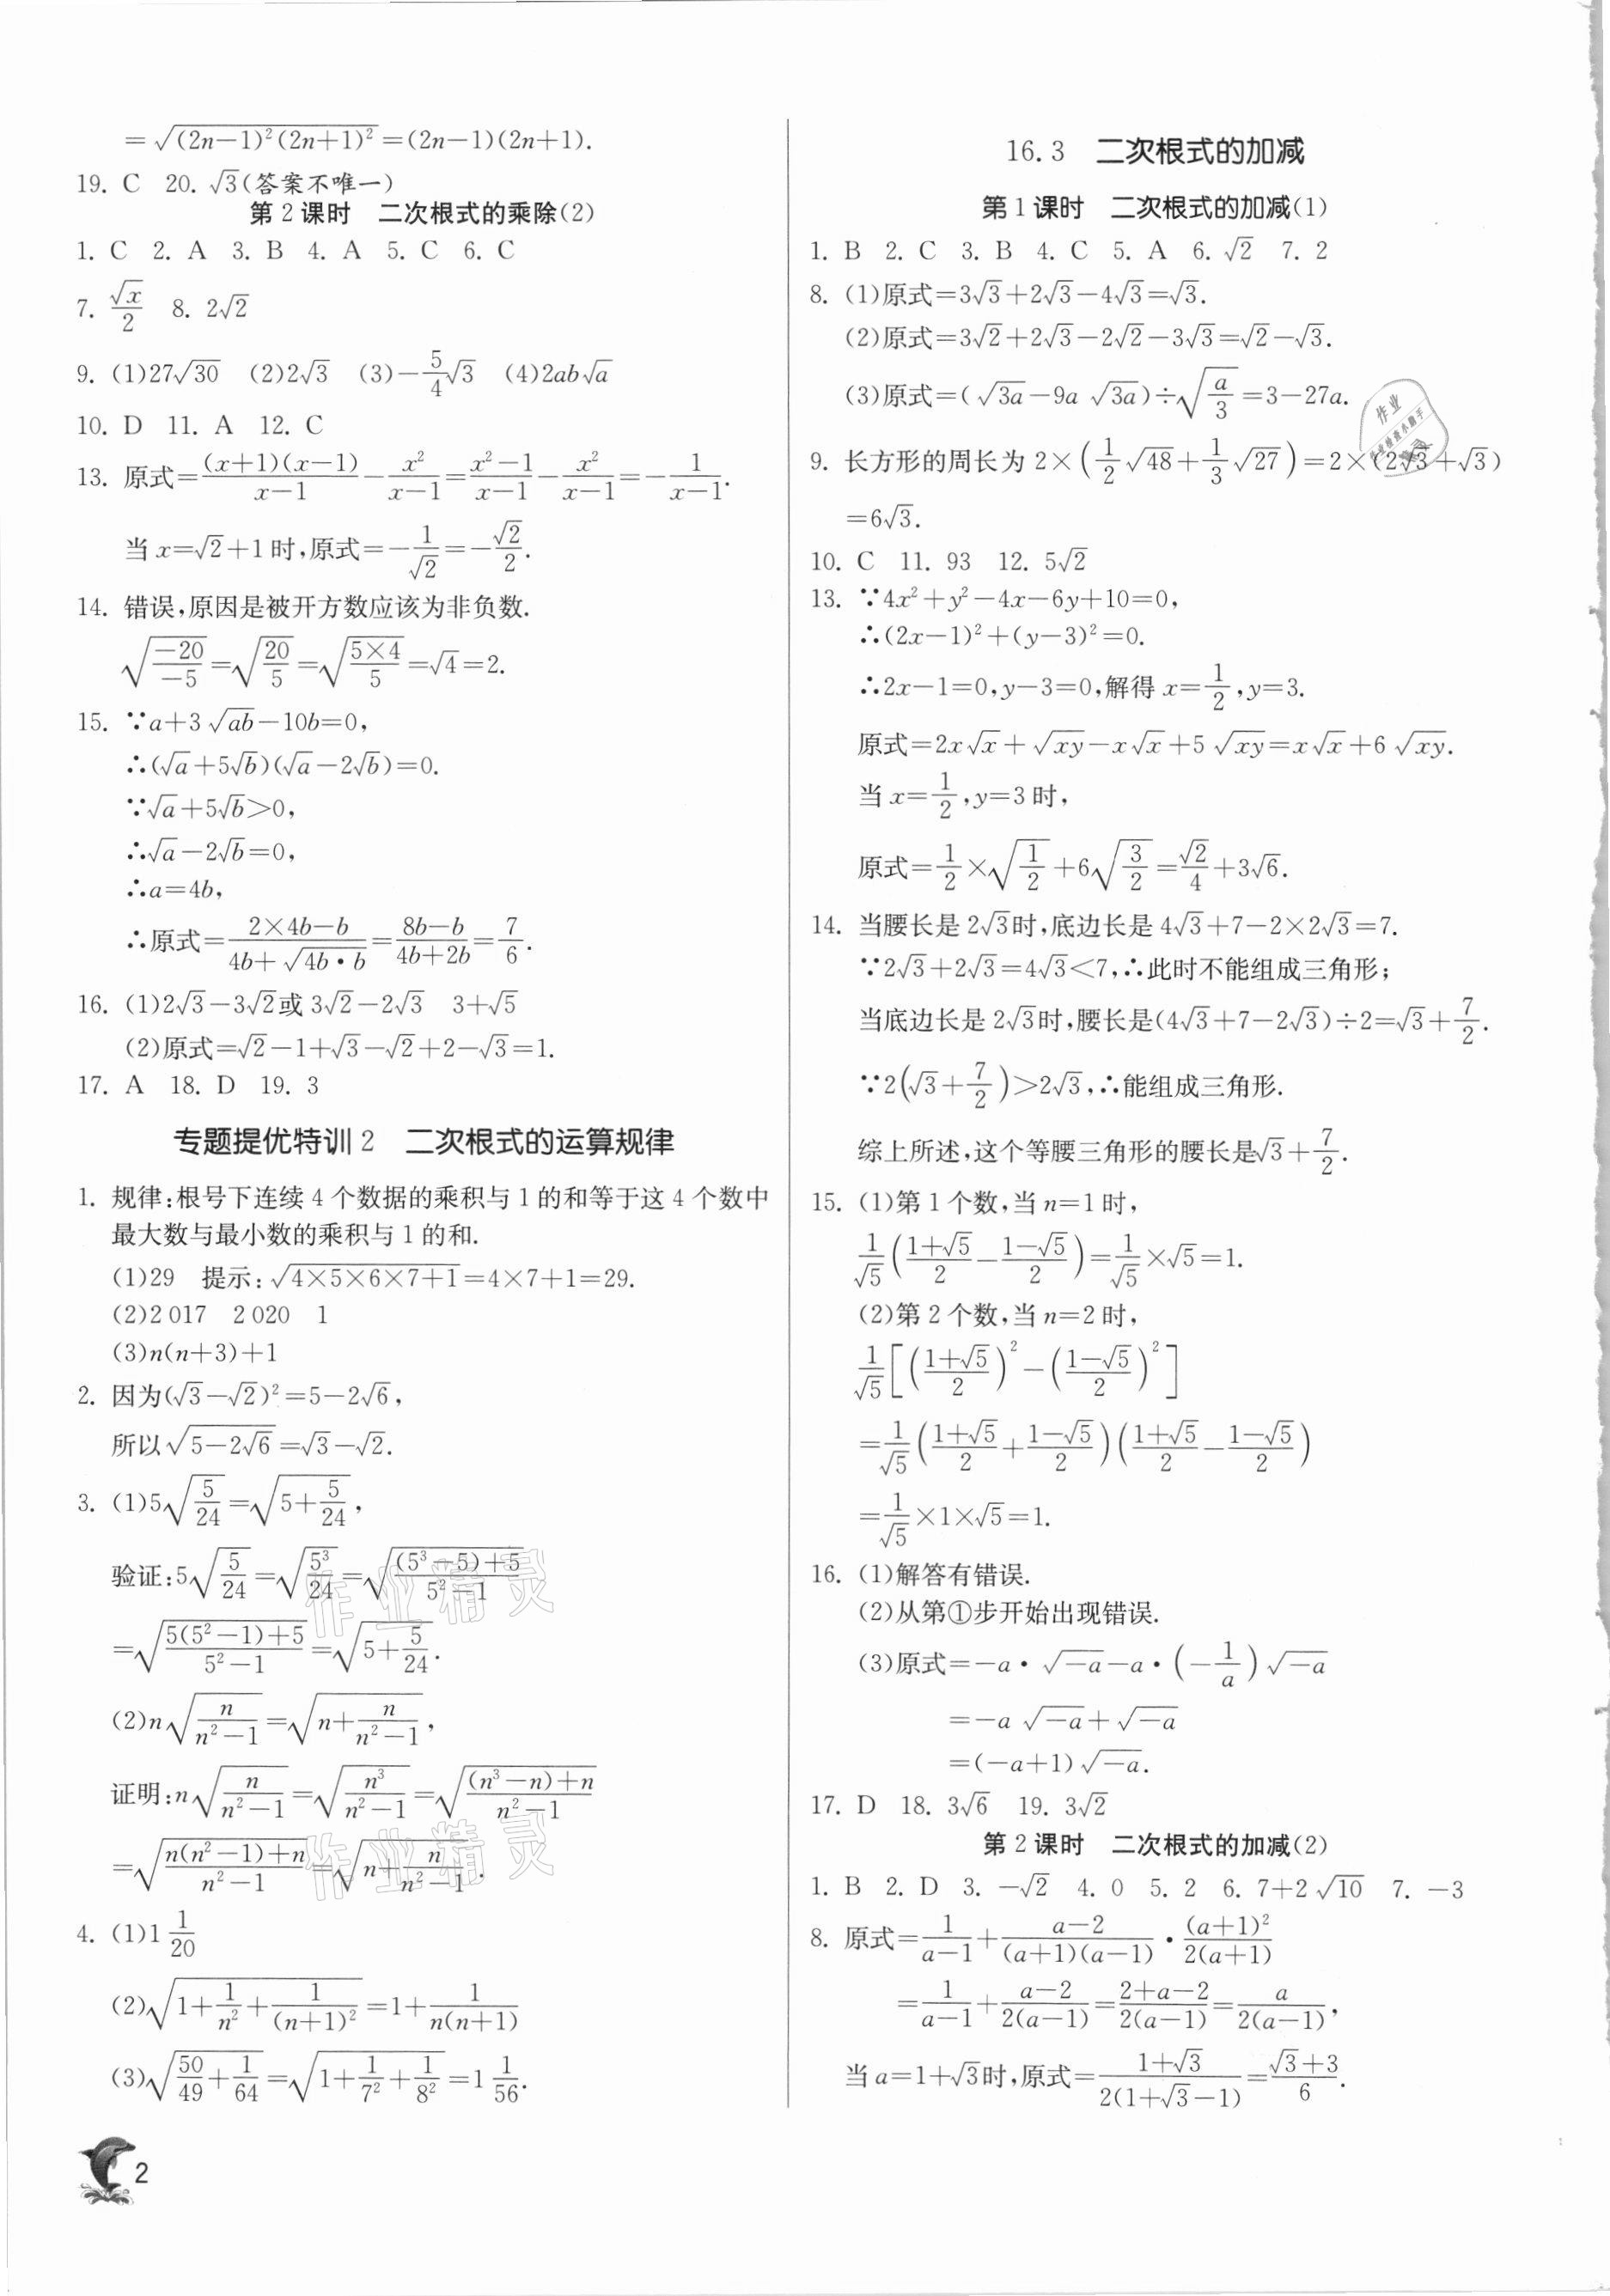 =√((2n−1)²(2n+1)²)=(2n−1)(2n+1).
19. C 20. √3(答案不唯一)
第2课时 二次根式的乘除(2)
1. C 2. A 3. B 4. A 5. C 6. C
7. √x/2 8. 2√2
9. (1)27√30 (2)2√3 (3)−5/4√3 (4)2ab√a
10. D 11. A 12. C
13. 原式=(x+1)(x−1)/(x−1)−x²/(x−1)=(x²−1)/(x−1)−x²/(x−1)=−1/(x−1).
当x=√2+1时,原式=−1/√2=−√2/2.
14. 错误,原因是被开方数应该为非负数.
√(−20/−5)=√(20/5)=√(5×4/5)=√4=2.
15. ∵a+3√(ab)−10b=0,
∴(√a+5√b)(√a−2√b)=0.
∵√a+5√b>0,
∴√a−2√b=0,
∴a=4b,
∴原式=(2×4b−b)/(4b+√(4b·b))=(8b−b)/(4b+2b)=7/6.
16. (1)2√3−3√2或3√2−2√3 3+√5
(2)原式=√2−1+√3−√2+2−√3=1.
17. A 18. D 19. 3
专题提优特训2 二次根式的运算规律
1. 规律:根号下连续4个数据的乘积与1的和等于这4个数中
最大数与最小数的乘积与1的和.
(1)29 提示:√(4×5×6×7+1)=4×7+1=29.
(2)2 017 2 020 1
(3)n(n+3)+1
2. 因为(√3−√2)²=5−2√6,
所以√(5−2√6)=√3−√2.
3. (1)5√(5/24)=√(5+5/24),
验证:5√(5/24)=√(5³/24)=√(((5³−5)+5)/(5²−1))
=√((5(5²−1)+5)/(5²−1))=√(5+5/24).
(2)n√(n/(n²−1))=√(n+n/(n²−1)),
证明:n√(n/(n²−1))=√(n³/(n²−1))=√(((n³−n)+n)/(n²−1))
=√((n(n²−1)+n)/(n²−1))=√(n+n/(n²−1)).
4. (1)1 1/20
(2)√(1+1/n²+1/(n+1)²)=1+1/(n(n+1))
(3)√(50/49+1/64)=√(1+1/7²+1/8²)=1 1/56.
2
16.3 二次根式的加减
第1课时 二次根式的加减(1)
1. B 2. C 3. B 4. C 5. A 6. √2 7. 2
8. (1)原式=3√3+2√3−4√3=√3.
(2)原式=3√2+2√3−2√2−3√3=√2−√3.
(3)原式=(√(3a)−9a√(3a))÷√(a/3)=3−27a.
9. 长方形的周长为2×(1/2√48+1/3√27)=2×(2√3+√3)
=6√3.
10. C 11. 93 12. 5√2
13. ∵4x²+y²−4x−6y+10=0,
∴(2x−1)²+(y−3)²=0.
∴2x−1=0,y−3=0,解得x=1/2,y=3.
原式=2x√x+√(xy)−x√x+5√(xy)=x√x+6√(xy).
当x=1/2,y=3时,
原式=1/2×√(1/2)+6√(3/2)=√2/4+3√6.
14. 当腰长是2√3时,底边长是4√3+7−2×2√3=7.
∵2√3+2√3=4√3<7,∴此时不能组成三角形;
当底边长是2√3时,腰长是(4√3+7−2√3)÷2=√3+7/2.
∵2(√3+7/2)>2√3,∴能组成三角形.
综上所述,这个等腰三角形的腰长是√3+7/2.
15. (1)第1个数,当n=1时,
1/√5((1+√5)/2−(1−√5)/2)=1/√5×√5=1.
(2)第2个数,当n=2时,
1/√5[((1+√5)/2)²−((1−√5)/2)²]
=1/√5((1+√5)/2+(1−√5)/2)((1+√5)/2−(1−√5)/2)
=1/√5×1×√5=1.
16. (1)解答有错误.
(2)从第①步开始出现错误.
(3)原式=−a·√(−a)−a·(−1/a)√(−a)
=−a√(−a)+√(−a)
=(−a+1)√(−a).
17. D 18. 3√6 19. 3√2
第2课时 二次根式的加减(2)
1. B 2. D 3. −√2 4. 0 5. 2 6. 7+2√10 7. −3
8. 原式=1/(a−1)+(a−2)/((a+1)(a−1))·(a+1)²/(2(a+1))
=1/(a−1)+(a−2)/(2(a−1))=(2+a−2)/(2(a−1))=a/(2(a−1)),
当a=1+√3时,原式=(1+√3)/(2(1+√3−1))=(√3+3)/6.
作业精灵
作业精灵